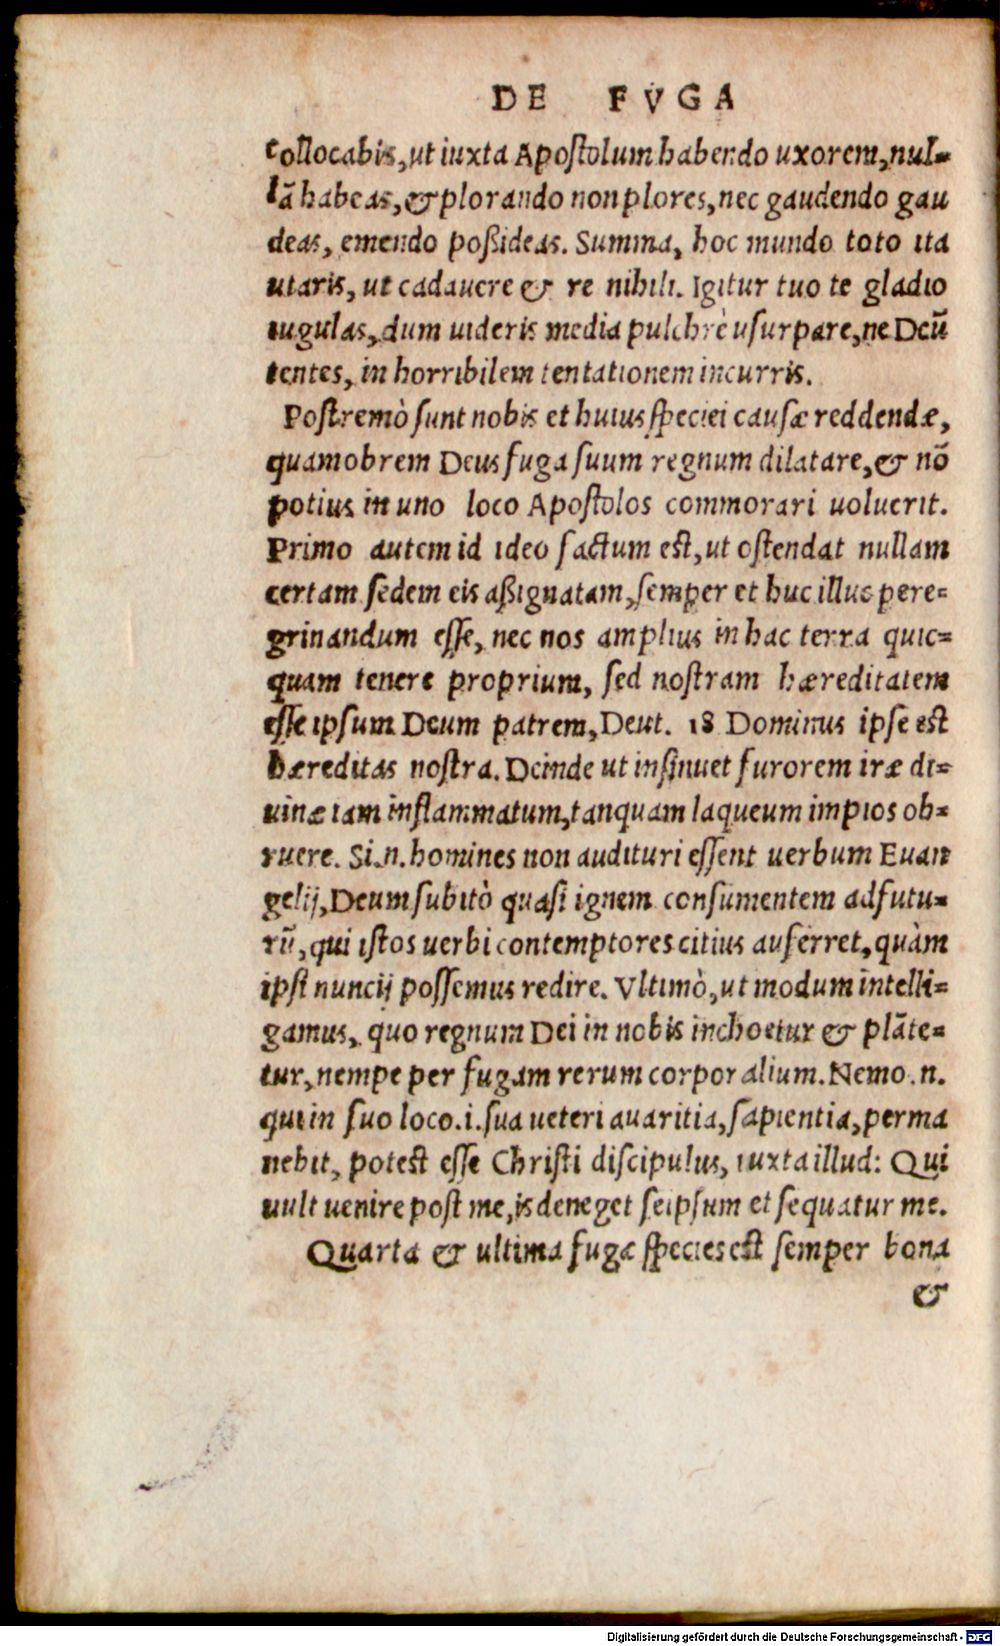 DE FVGA
collocabis, ut iuxta Apostolum habendo uxorem, nul-
lā habeas, & plorando non plores, nec gaudendo gau
deas, emendo poßideas. Summa, hoc mundo toto ita
utaris, ut cadauere & re nihili. Igitur tuo te gladio
iugulas, dum uideris media pulchrè usurpare, ne Deū
tentes, in horribilem tentationem incurris.
Postremò sunt nobis et huius speciei causæ reddendæ,
quamobrem Deus fuga suum regnum dilatare, & nō
potius in uno loco Apostolos commorari uoluerit.
Primo autem id ideo factum est, ut ostendat nullam
certam sedem eis aßignatam, semper et huc illuc pere-
grinandum esse, nec nos amplius in hac terra quic-
quam tenere proprium, sed nostram hæreditatem
esse ipsum Deum patrem, Deut. 18 Dominus ipse est
hæreditas nostra. Deinde ut insinuet furorem iræ di-
uinæ iam inflammatum, tanquam laqueum impios ob-
ruere. Si.n. homines non audituri essent uerbum Euan
gelij, Deum subitò quasi ignem consumentem adfutu-
rū, qui istos uerbi contemptores citius auferret, quàm
ipsi nuncij possemus redire. Vltimò, ut modum intelli-
gamus, quo regnum Dei in nobis inchoetur & plāte-
tur, nempe per fugam rerum corporalium. Nemo .n.
qui in suo loco .i. sua ueteri auaritia, sapientia, perma
nebit, potest esse Christi discipulus, iuxta illud: Qui
uult uenire post me, is deneget seipsum et sequatur me.
Quarta & ultima fugæ species est semper bona
&
Digitalisierung gefördert durch die Deutsche Forschungsgemeinschaft - DFG